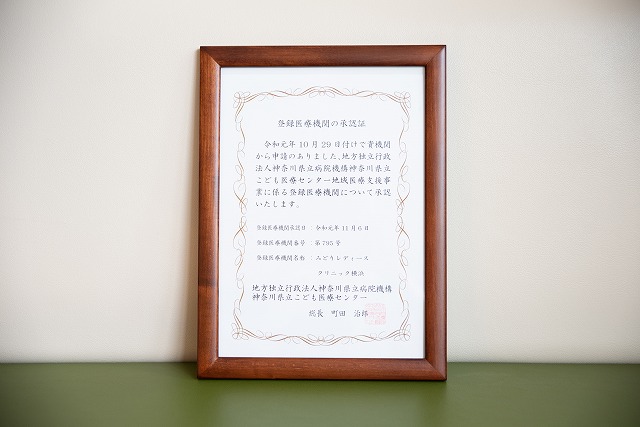 登録医療機関の承認証
令和元年10月29日付けで貴機関
から申請のありました、地方独立行政
法人神奈川県立病院機構神奈川県立
こども医療センター地域医療支援事
業に係る登録医療機関について承認
いたします。
登録医療機関承認日：令和元年11月6日
登録医療機関番号：第795号
登録医療機関名称：みどりレディース
クリニック横浜
地方独立行政法人神奈川県立病院機構
神奈川県立こども医療センター
総長 町田 治郎